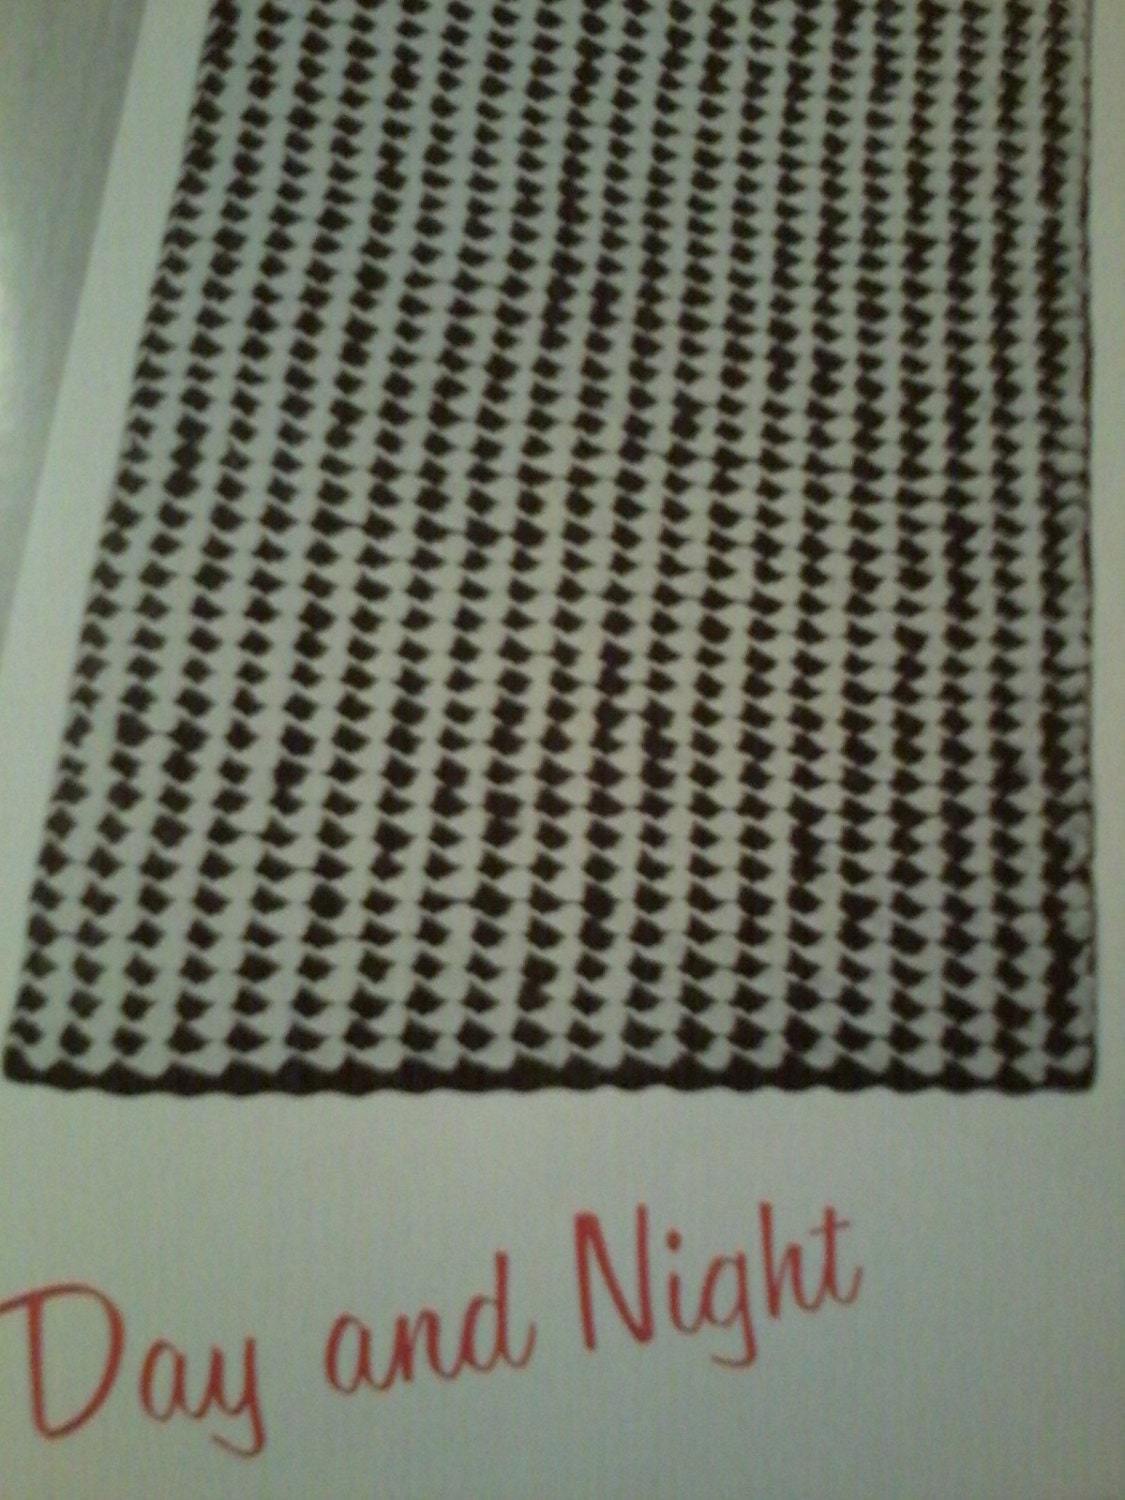 Day and Night